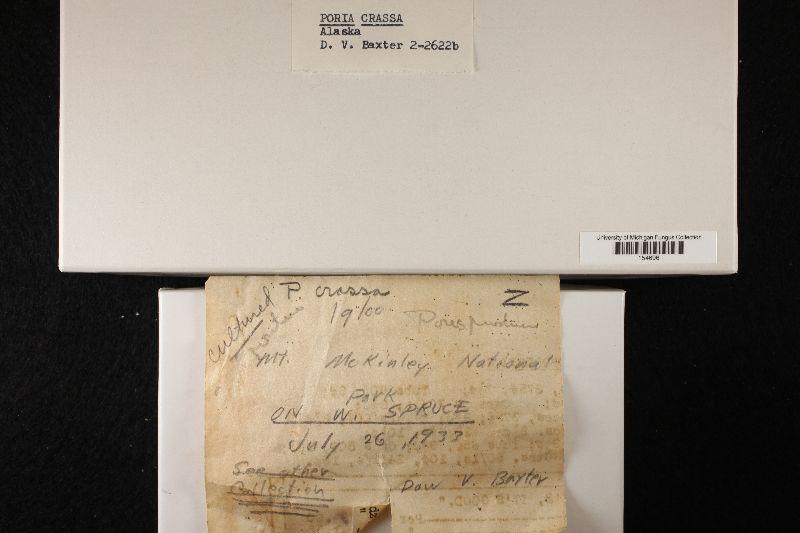 PORIA CRASSA
Alaska
D. V. Baxter 2-2622b
University of Michigan Fungus Collection
154696
P crassa
cultured
19100
Z
Mt. McKinley National
Park
ON W. SPRUCE
July 26, 1933
See other
Collection
Dow V. Baxter